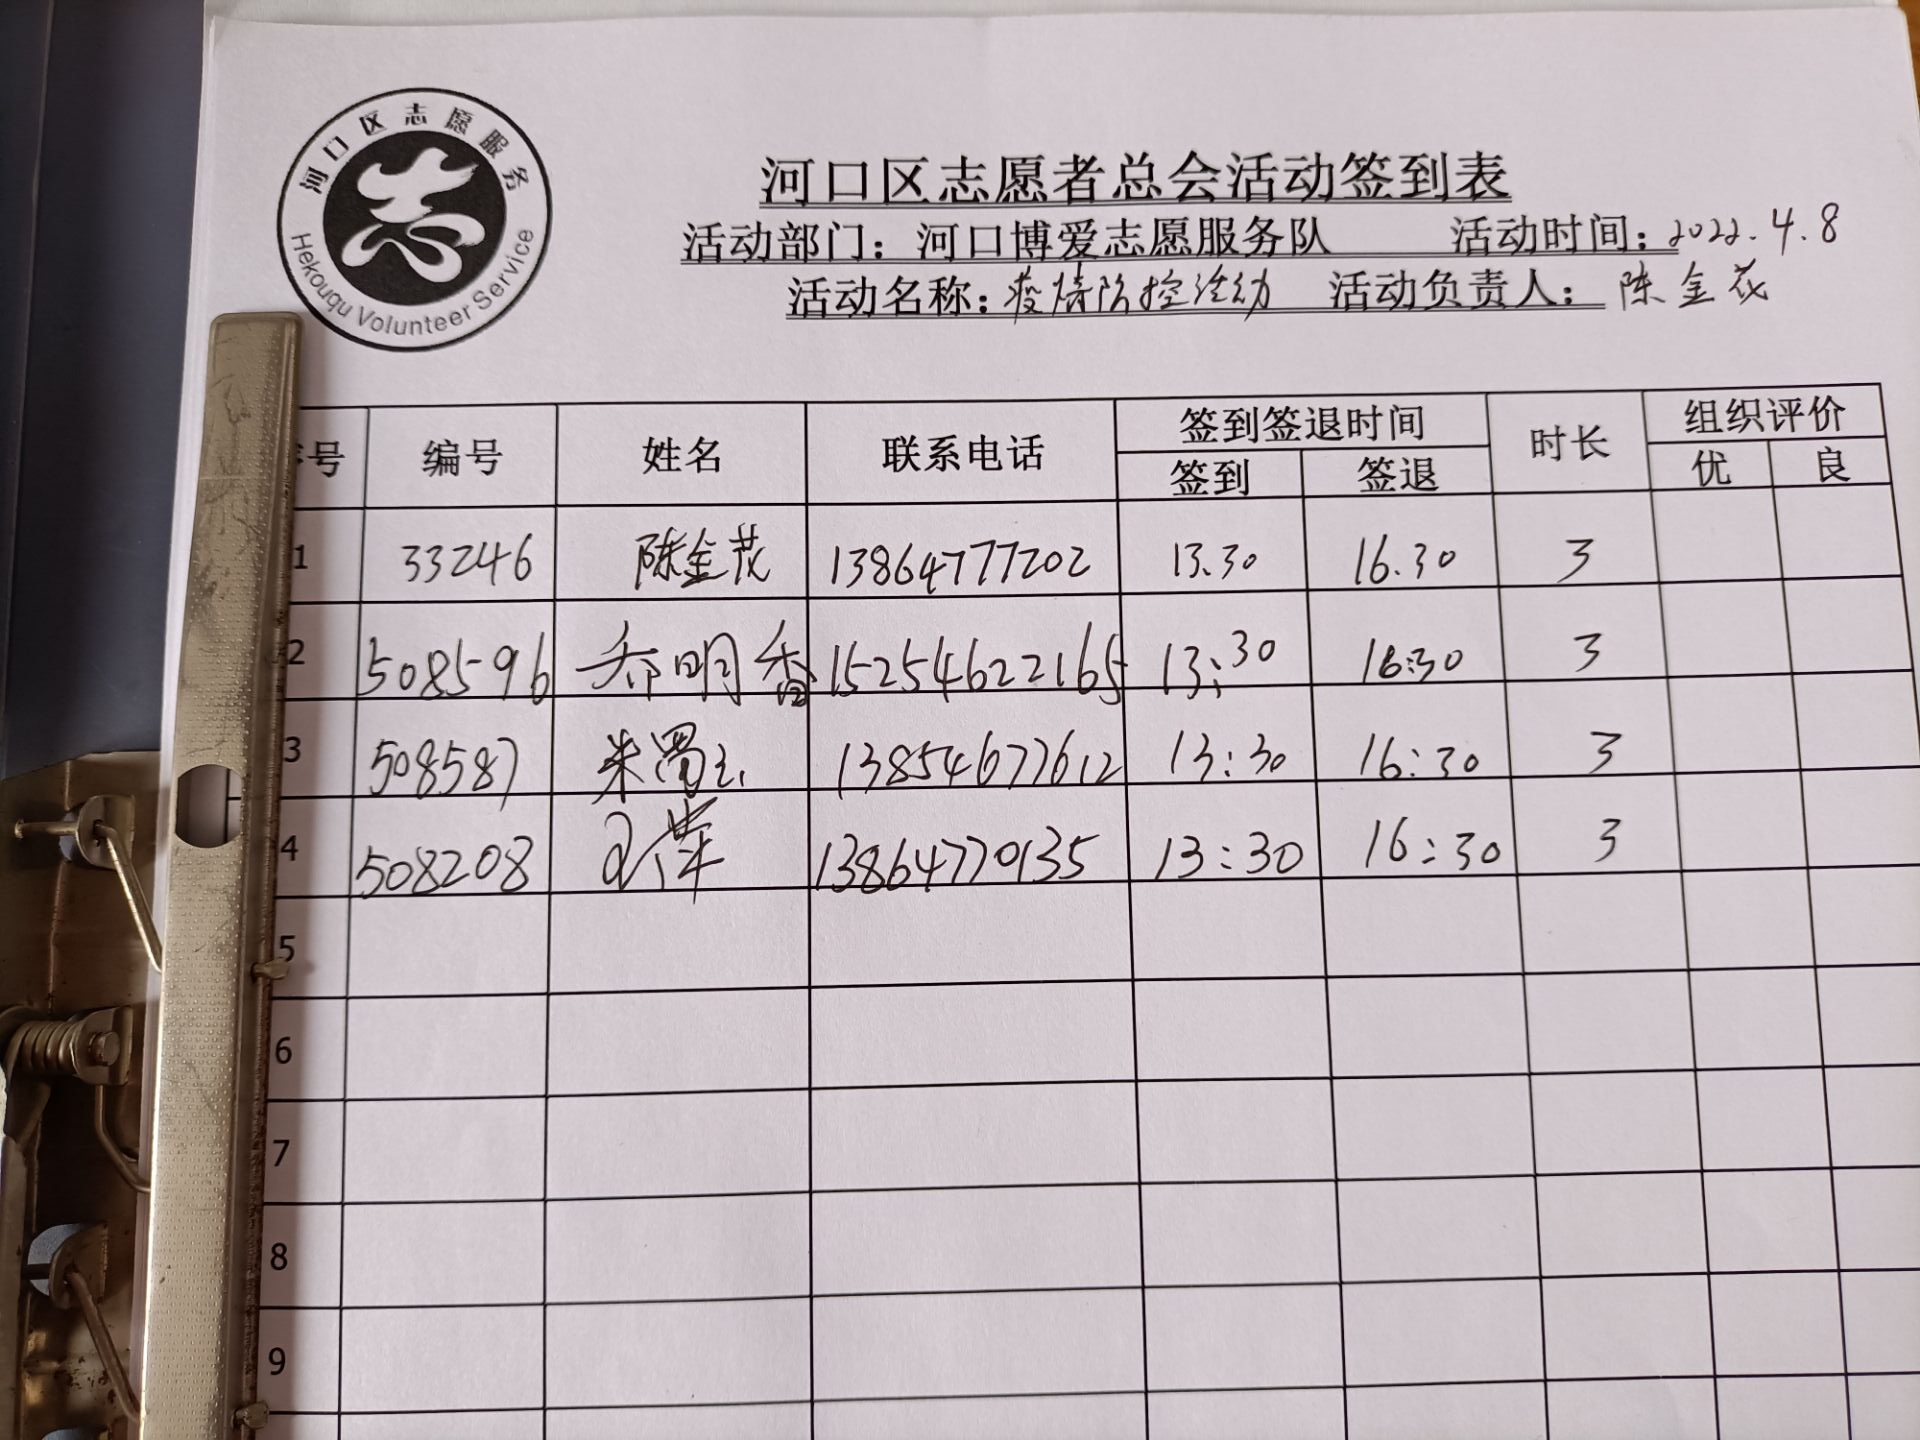 河口区志愿服务
志
Hekouqu Volunteer Service
河口区志愿者总会活动签到表
活动部门：河口博爱志愿服务队 活动时间：2022.4.8
活动名称：疫情防控活动 活动负责人：陈金花
号 编号 姓名 联系电话 签到签退时间 时长 组织评价
签到 签退 优 良
1 33246 陈金花 13864777202 13.30 16.30 3
2 508596 乔明香 15254622165 13:30 16:30 3
3 508587 朱 13854677612 13:30 16:30 3
4 508208 13864770135 13:30 16:30 3
5
6
7
8
9